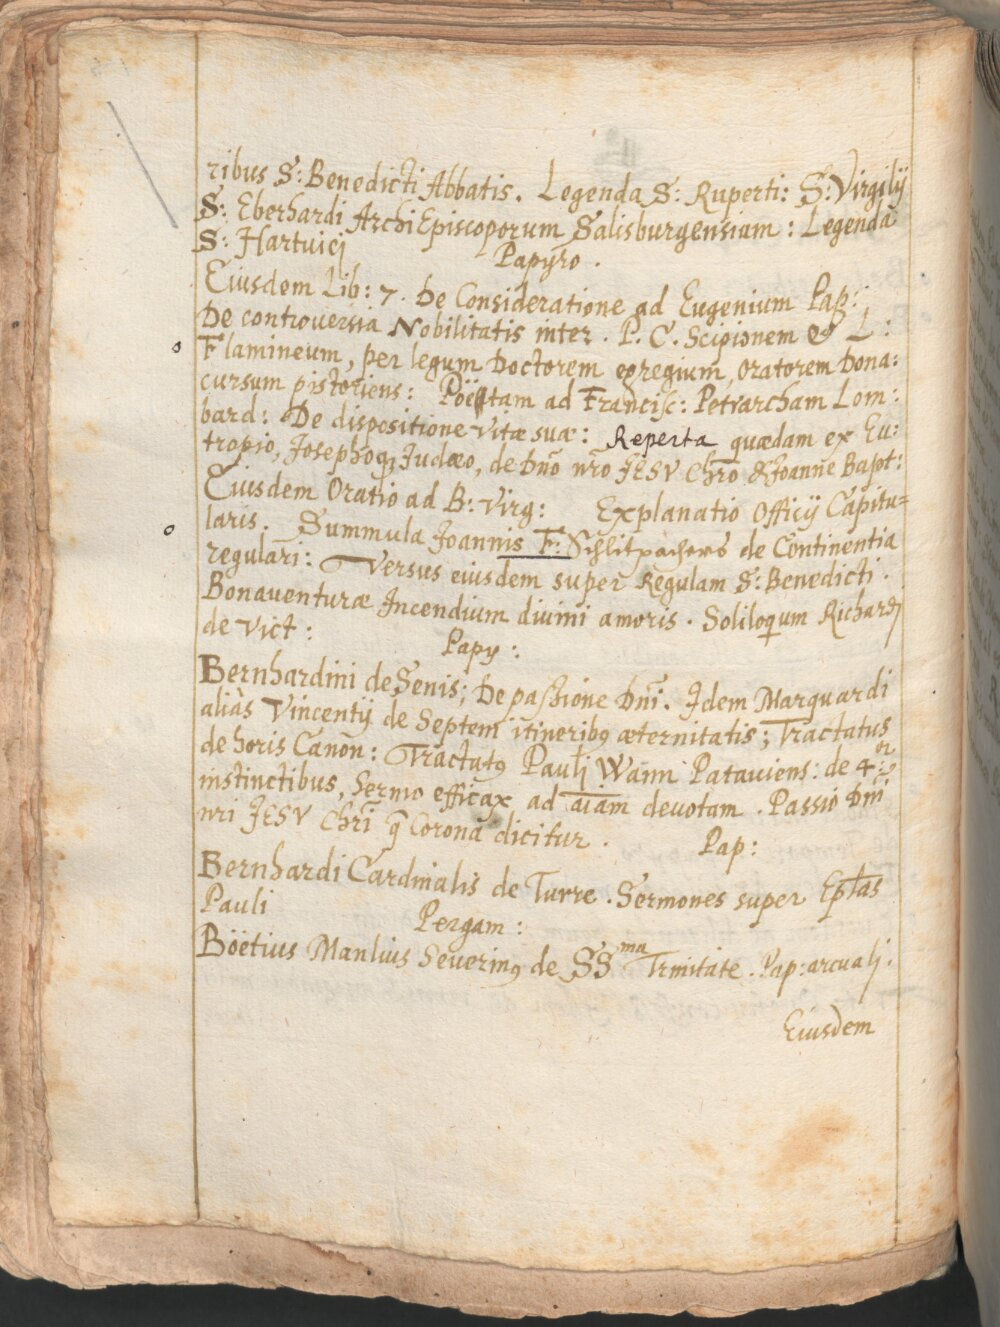 ribus S: Benedicti Abbatis. Legenda S: Ruperti: S: Virgilij
S: Eberhardi ArchiEpiscoporum Salisburgensium: Legenda
S: Hartuici
Papyro.
Eiusdem Lib: 7. De Consideratione ad Eugenium Pap:
De controuersia Nobilitatis inter. P. C. Scipionem & L:
Flamineum, per legum Doctorem egregium, Oratorem Dona:
cursum pistoriens: Poëtam ad Francisc: Petrarcham Lom:
bard: De dispositione vitæ suæ: Reperta quædam ex Eu:
tropio, Josephoq; Judæo, de Dño nro JESV Chro & Joanne Bapt:
Eiusdem Oratio ad B: Virg: Explanatio Officij Capitu=
laris. Summula Joannis F: Schlitpachers de Continentia
regulari: Versus eiusdem super Regulam S: Benedicti.
Bonauenturæ Incendium diuini amoris. Soliloquum Richardj
de Vict:
Papy:
Bernhardini de Senis; De passione Dñi. Idem Marquardi
aliàs Vincentij de Septem itineribꝯ æternitatis; Tractatus
de horis Canon: Tractatꝯ Pauli Wann Patauiens: de 4or
instinctibus, Sermo efficax ad aiam deuotam. Passio Dñi
nri JESV Chri q̃ Corona dicitur. Pap:
Bernhardi Cardinalis de Turre. Sermones super Eptas
Pauli
Pergam:
Böetius Manlius Seuerinꝯ de SSma Trinitate. Pap: arcualj.
Eiusdem